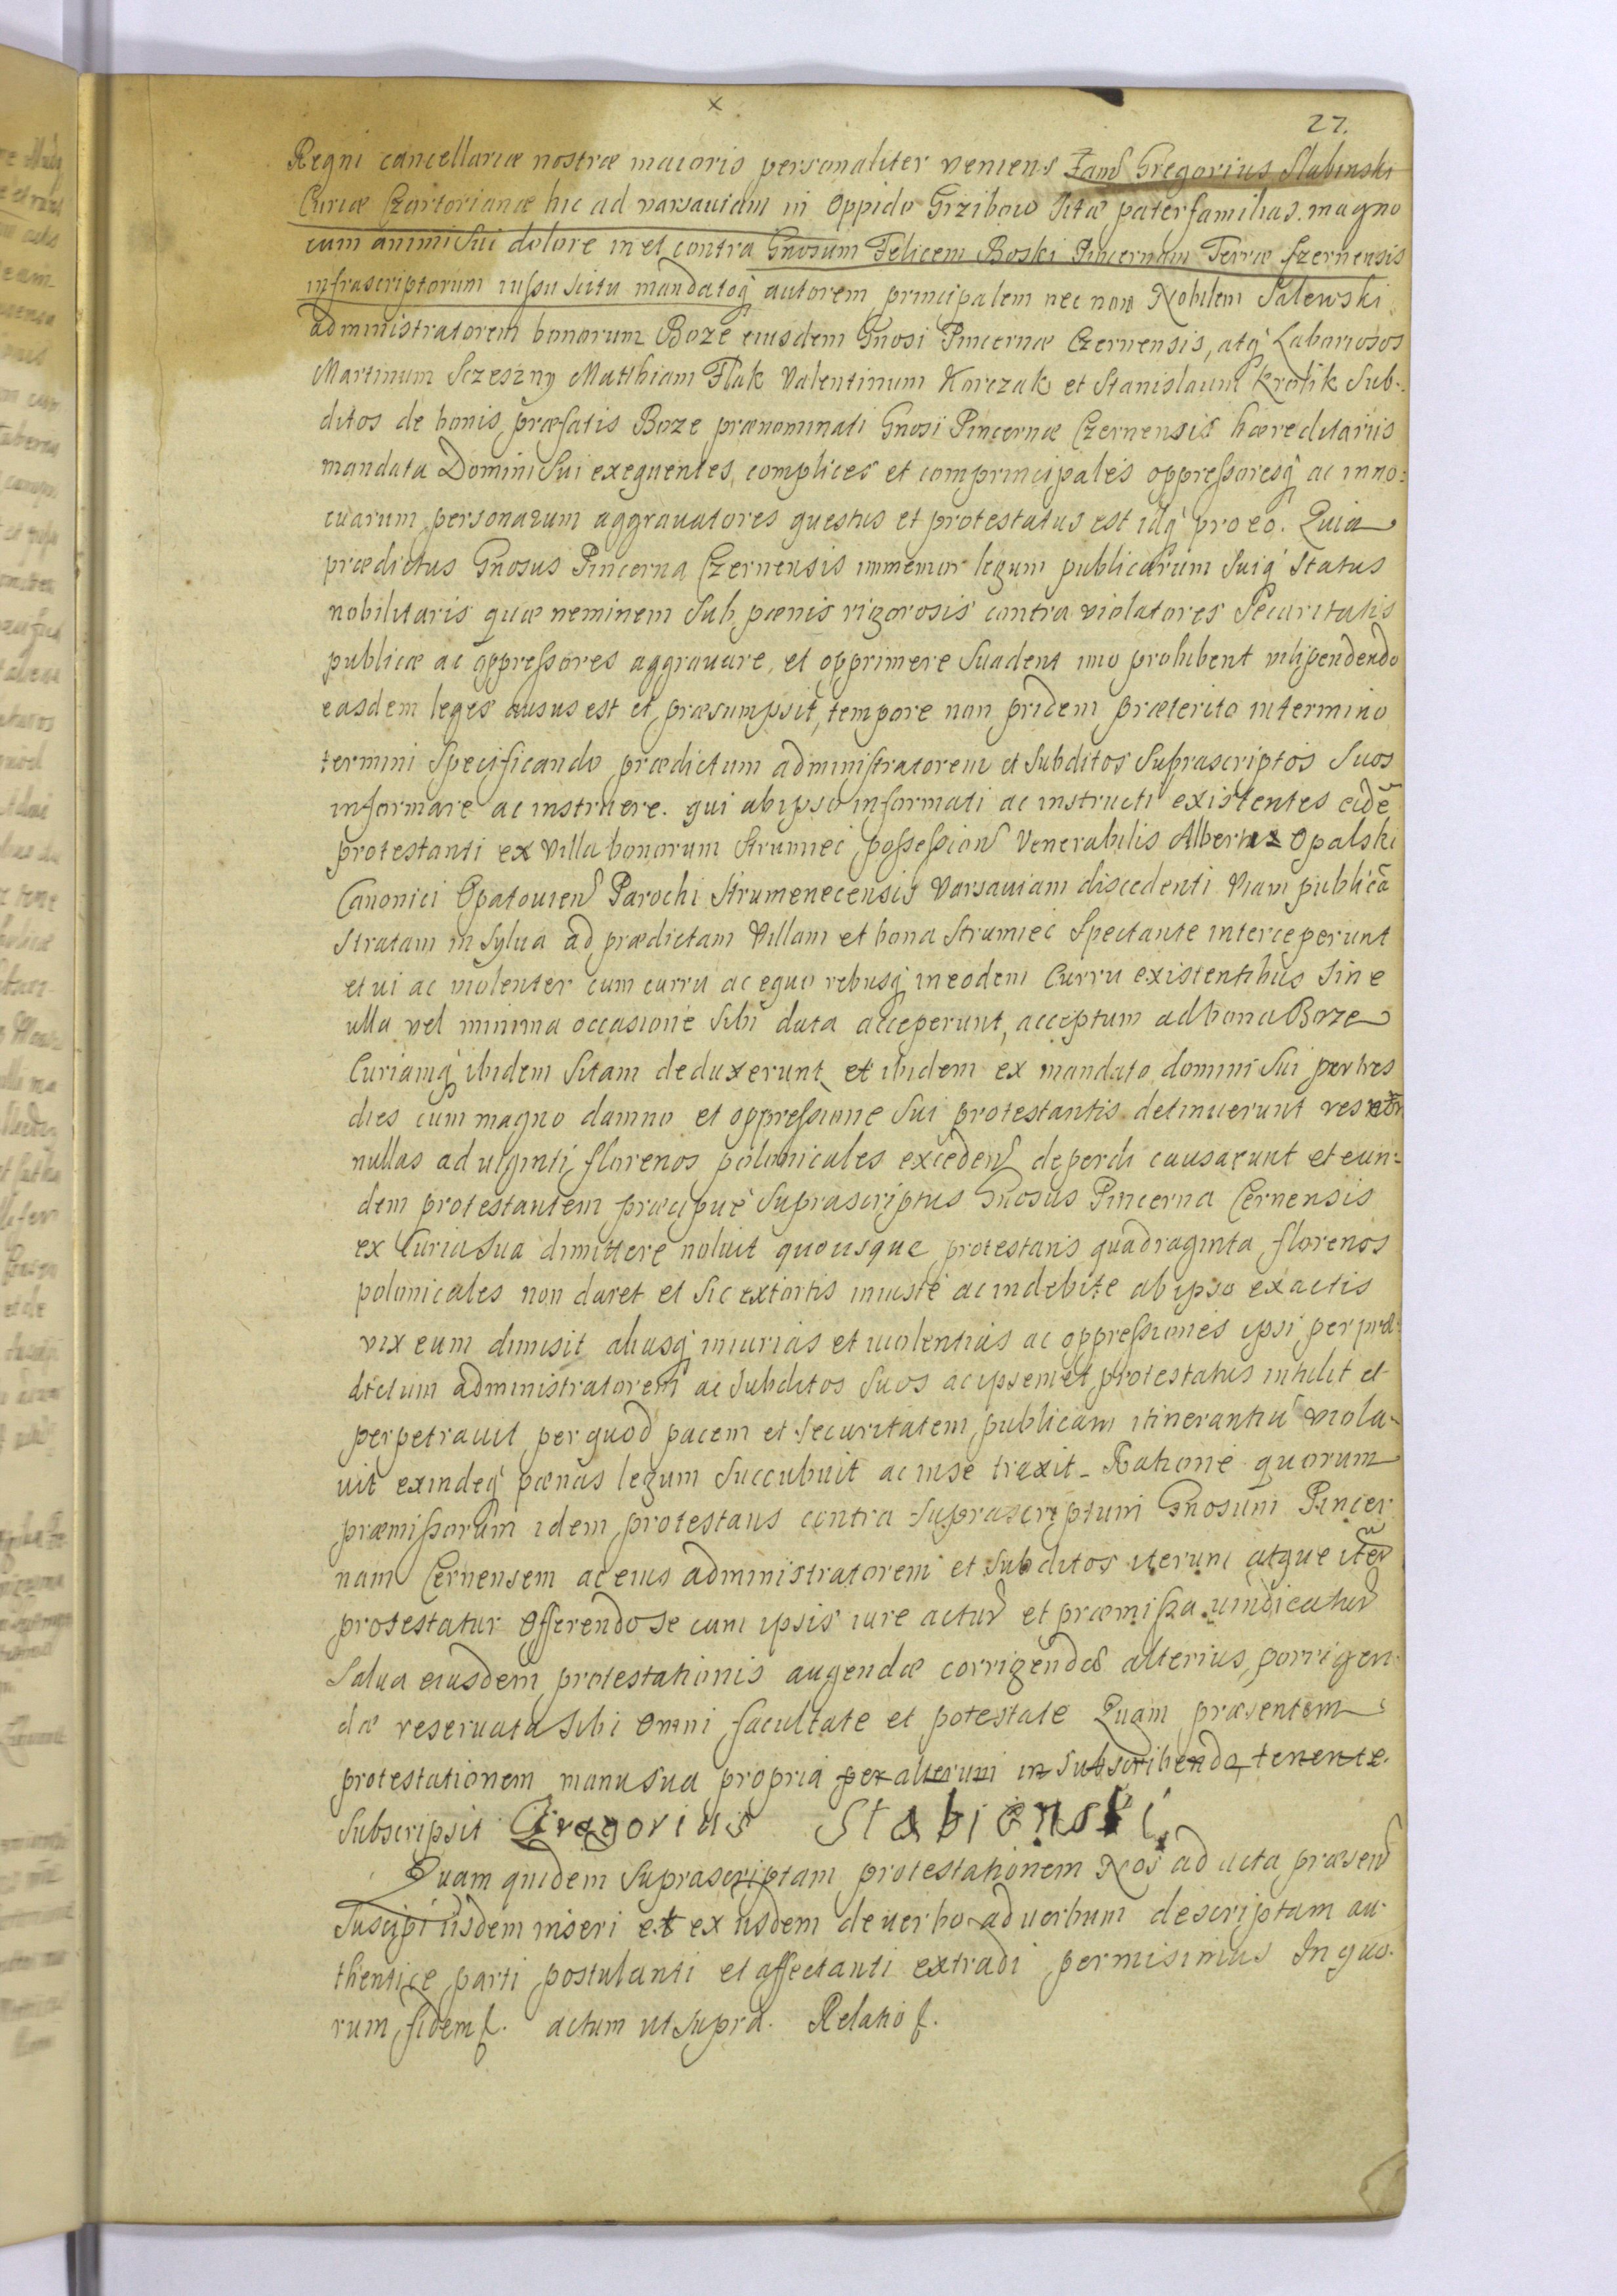 x
27.
Regni cancellariæ nostræ maioris personaliter veniens Fam̃ Gregorius Slabinski
Curiæ Czartorianæ hic ad varsauiam in Oppido Grzibow sitæ paterfamilias. magno
cum animi sui dolore in et contra Gnosum Felicem Boski Pincernam Terræ Czernensis
infrascriptorum iussu scitu mandatoq́ autorem principalem nec non Nobilem Salewski
administratorem bonorum Boze eiusdem Gnosi Pincernæ Czernensis, atq́ Laboriosos
Martinum Sczeszny Matthiam Flak Valentinum Korczak et Stanislaum Krolik sub-
ditos de bonis præfatis Boze prænominati Gnosi Pincernæ Czernensis hæreditariis
mandata Domini sui exequentes, complices et comprincipales oppressoresq́ ac inno=
cuarum personarum aggrauatores questus et protestatus est idq́ pro eo. Quia
prædictus Gnosus Pincerna Czernensis immemor legum publicarum suiq́ status
nobilitaris quæ neminem sub pœnis rigorosis contra violatores securitatis
publicæ ac oppressores aggrauare, et opprimere suadent imo prohibent vilipendendo
easdem leges ausus est et præsumpsit, tempore non pridem præterito in termino
termini specificando prædictum administratorem et subditos suprascriptos suos
informare ac instruere. qui ab ipso informati ac instructi existentes eidẽ
protestanti ex villa bonorum Strumiec possession̄ Venerabilis Alberti Opalski
Canonici Opatouien̄ Parochi Strumenecensis Varsauiam discedenti viam publicã
stratam in sylua ad prædictam Villam et bona Strumiec spectante interceperunt
et ui ac violenter cum curru ac equo rebusq́ in eodem Curru existentibus sine
ulla vel minima occasione sibi data acceperunt, acceptum ad bona Boze
Curiamq́ ibidem sitam deduxerunt et ibidem ex mandato domini sui per tres
dies cum magno damno et oppressione sui protestantis detinuerunt res
nullas ad uiginti florenos polonicales exceden̄ deperdi causarunt et eun=
dem protestantem præcipuè suprascriptus Gnosus Pincerna Cernensis
ex Curia sua dimittere noluit quousque protestans quadraginta florenos
polonicales non daret et sic extortis iniustè ac indebite ab ipso exactis
vix eum dimisit aliasq́ iniurias et uiolentias ac oppressiones ipsi per præ=
dictum administratorem ac subditos suos ac ipsemet protestatus intulit et
perpetrauit per quod pacem et securitatem publicam itinerantiũ viola-
uit exindeq́ pœnas legum succubuit ac in se traxit. Ratione quorum
præmissorum idem protestans contra suprascriptum Gnosum Pincer
nam Cernensem ac eius administratorem et subditos iterum atque iterũ
protestatur Offerendo se cum ipsis iure actur̄ et præmissa uindicatur̄
Salua eiusdem protestationis augendæ corrigendæ alterius porrigen-
dæ reseruata sibi omni facultate et potestate Quam præsentem
protestationem manu sua propria per alterum in subscribendo tenente.
subscripsit Gregorius Stabienski
Quam quidem suprascriptam protestationem Nos ad acta præsen̄
suscipi iisdem inseri et ex iisdem de uerbo ad uerbum descriptam au-
thentice parti postulanti et affectanti extradi permisimus In quo-
rum fidem &. actum ut supra. Relatio &.